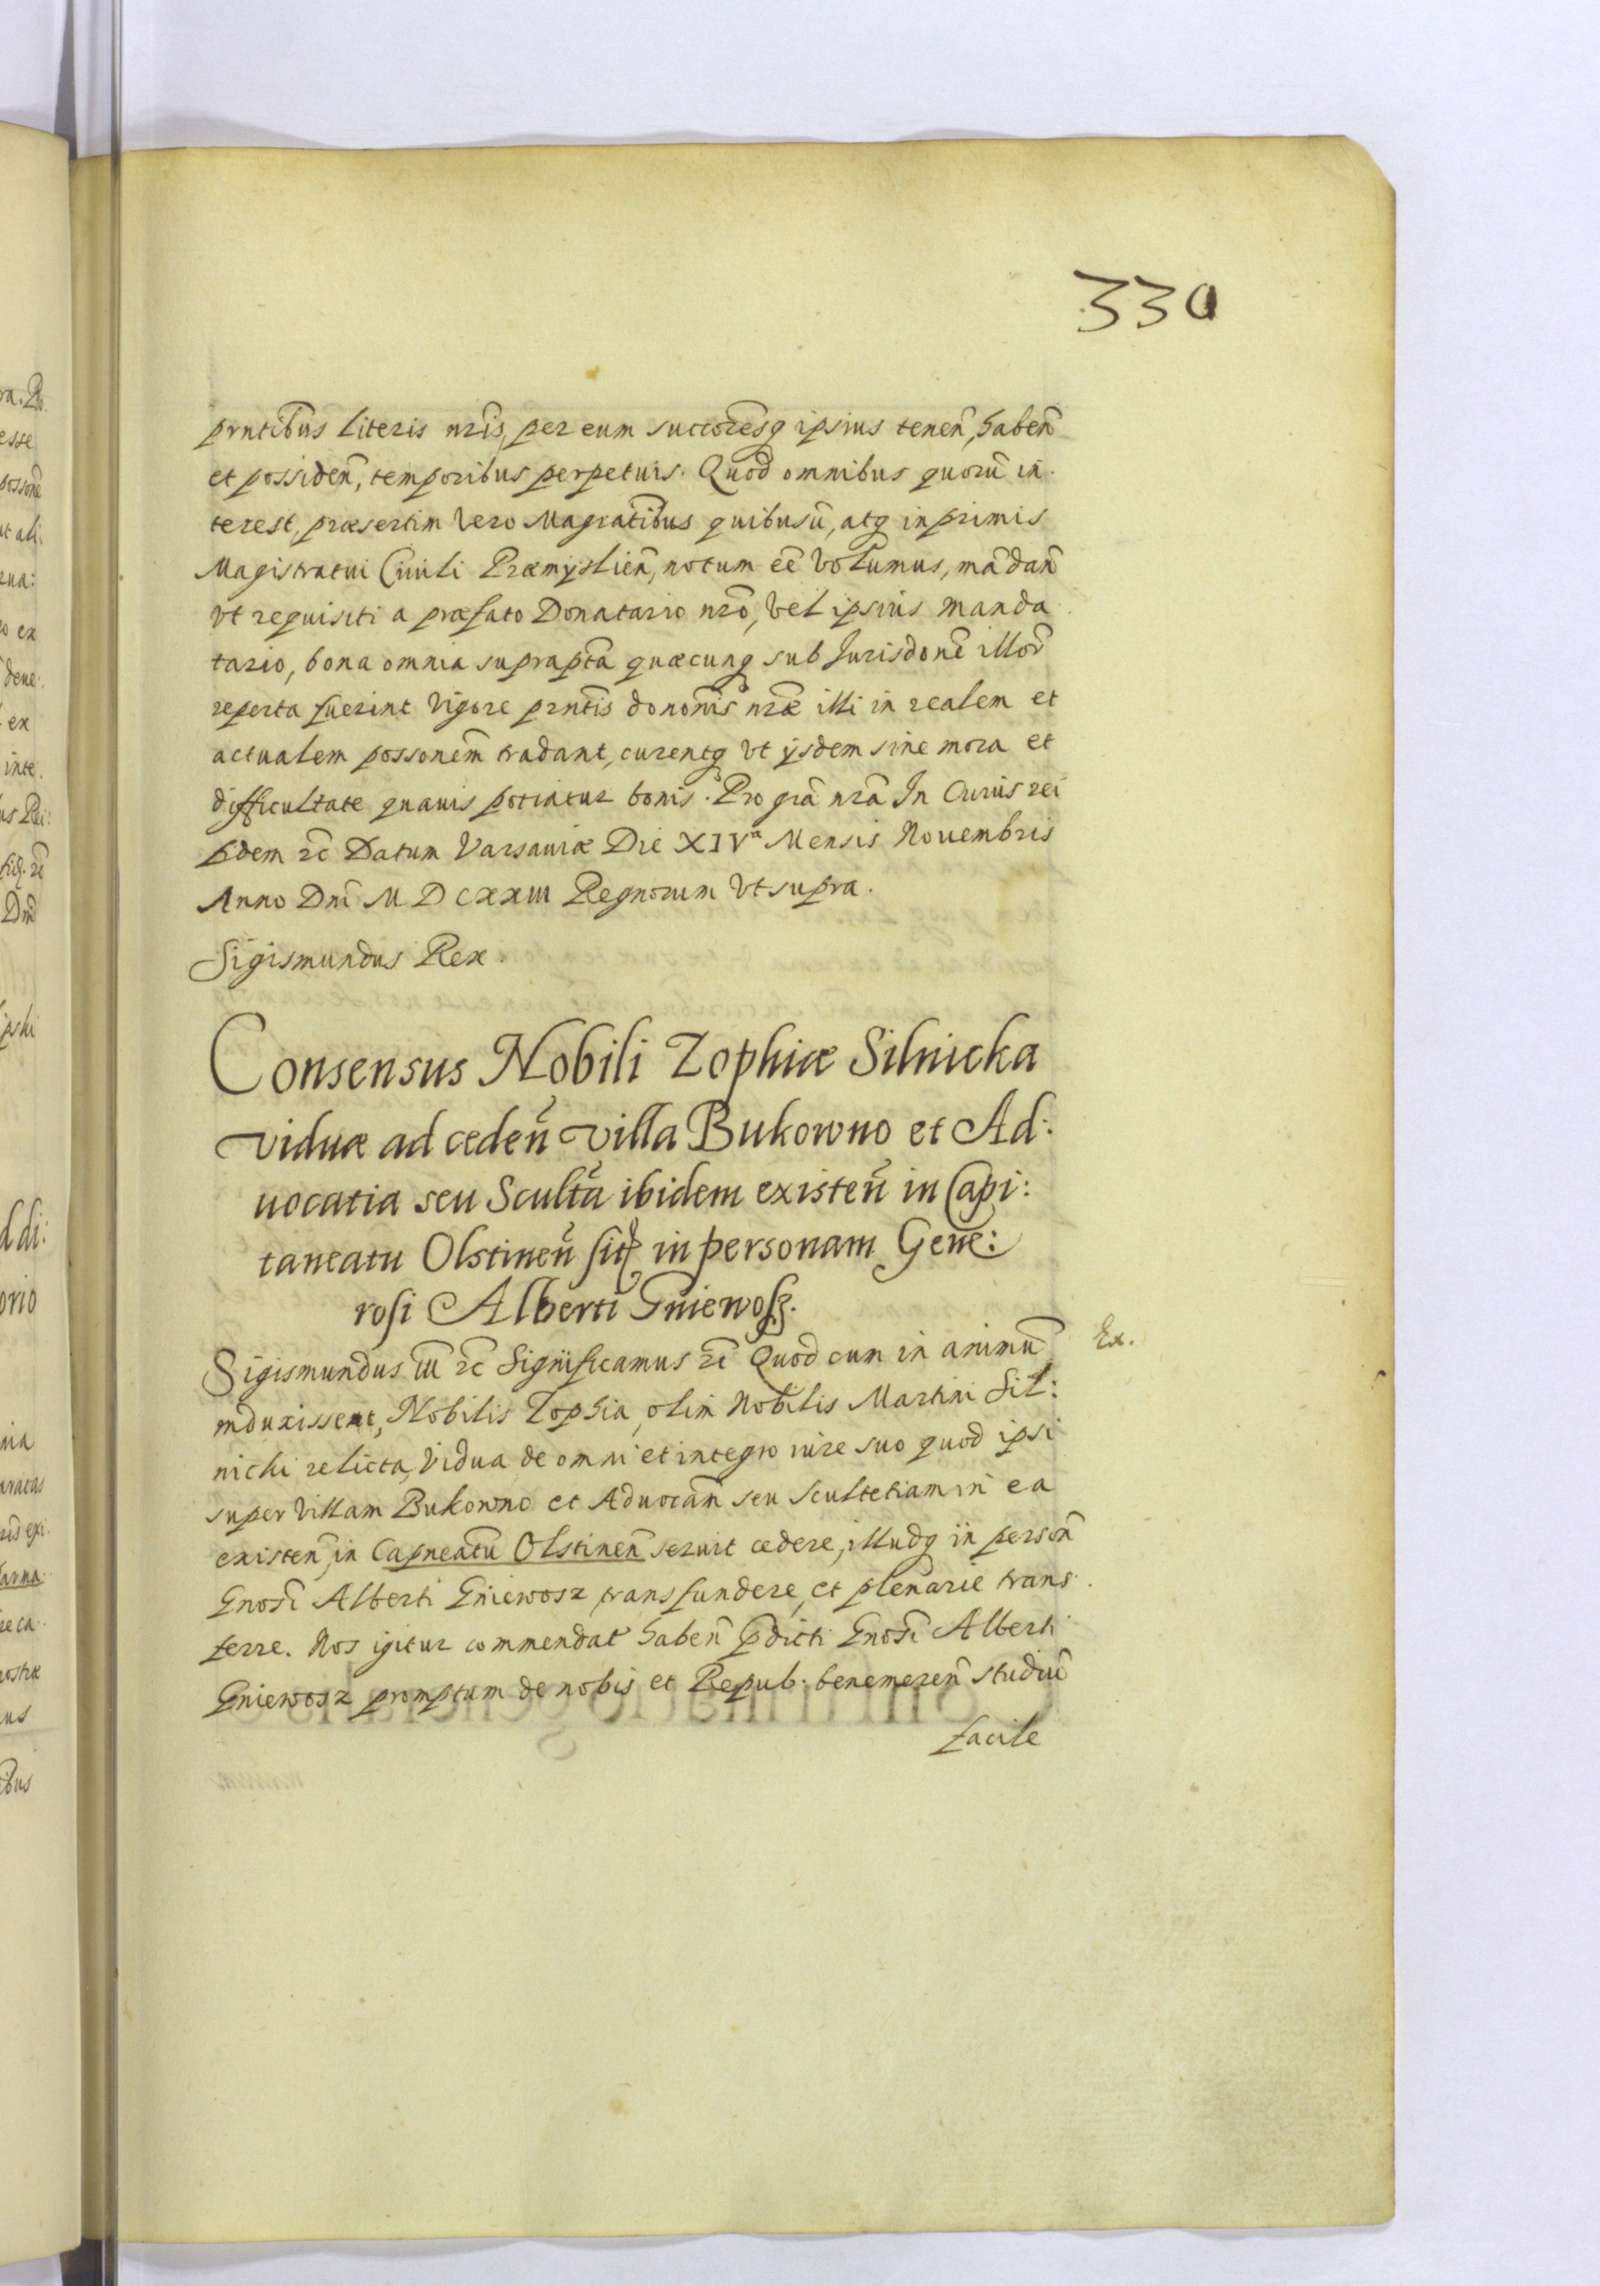 330
prntibus literis nris, per eum succoresq ipsius tenen, haben
et possiden, temporibus perpetuis. Quod omnibus quorū in
terest, præsertim vero Magratibus quibusū, atq inprimis
Magistratui Ciuili Præmyslien, notum eē volumus, mādan
vt requisiti a præfato Donatario nro, vel ipsius manda
tario, bona omnia suprapta quæcunq sub Jurisdone illor
reperta fuerint vigore prntis donomis nræ illi in realem et
actualem possonem tradant, curentq vt ijsdem sine mora et
difficultate quauis potiatur bonis. Pro gra nra In Cuius rei
fidem rc Datum Varsauiæ Die XIVa Mensis Nouembris
Anno Dni M D CXXIII Regnorum vt supra.
Sigismundus Rex.
Consensus Nobili Zophiæ Silnicka
viduæ ad ceden villa Bukowno et Ad:
uocatia seu Sculta ibidem existen in Capi:
taneatu Olstinen sit in personam Gene:
rosi Alberti Gniewosz.
Sigismundus III rc Significamus rc Quod cum in animū
induxissent, Nobilis Zophia, olim Nobilis Martini Sil:
nicki relicta, vidua de omni et integro iure suo quod ipsi
super villam Bukowno et Aduocam seu Scultetiam in ea
existen, in Capneatu Olstinen seruit cedere, illudq in person
Gnosi Alberti Gniewosz transfundere, et plenarie trans
ferre. Nos igitur commendat haben pdicti Gnosi Alberti
Gniewosz promptum de nobis et Repub. benemeren studiū
facile
Ex.